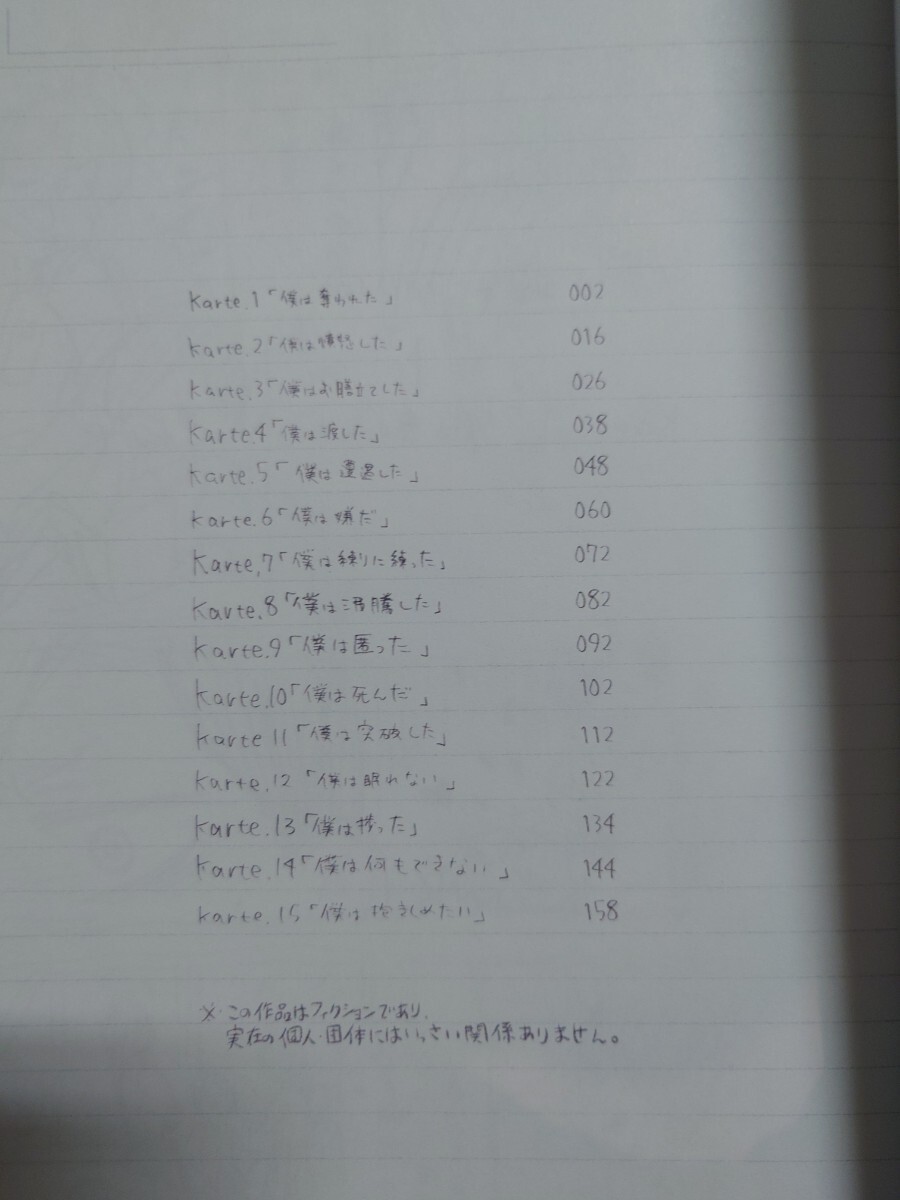 Karte.1「僕は奪われた」 002
Karte.2「僕は憤怒した」 016
Karte.3「僕はお膳立てした」 026
Karte.4「僕は渡した」 038
Karte.5「僕は遭遇した」 048
Karte.6「僕は嫌だ」 060
Karte.7「僕は練りに練った」 072
Karte.8「僕は沸騰した」 082
Karte.9「僕は匿った」 092
Karte.10「僕は死んだ」 102
Karte 11「僕は突破した」 112
Karte.12「僕は眠れない」 122
Karte.13「僕は捗った」 134
Karte.14「僕は何もできない」 144
Karte.15「僕は抱きしめたい」 158
※この作品はフィクションであり、
実在の個人・団体にはいっさい関係ありません。